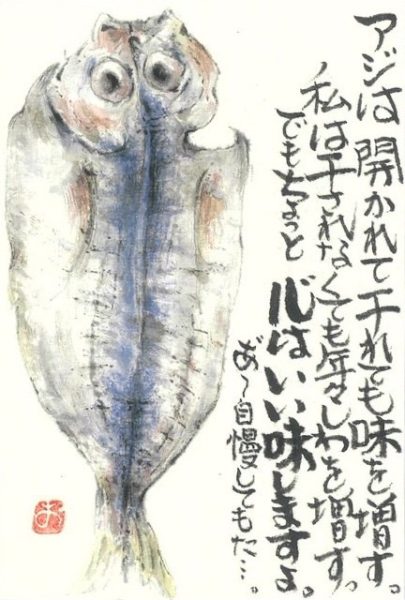 アジは開かれて干れても味を増す。
私は干されなくても年々しわを増す。
でもちょっと
心はいい味しますよ。
あ〜自慢してもた…。